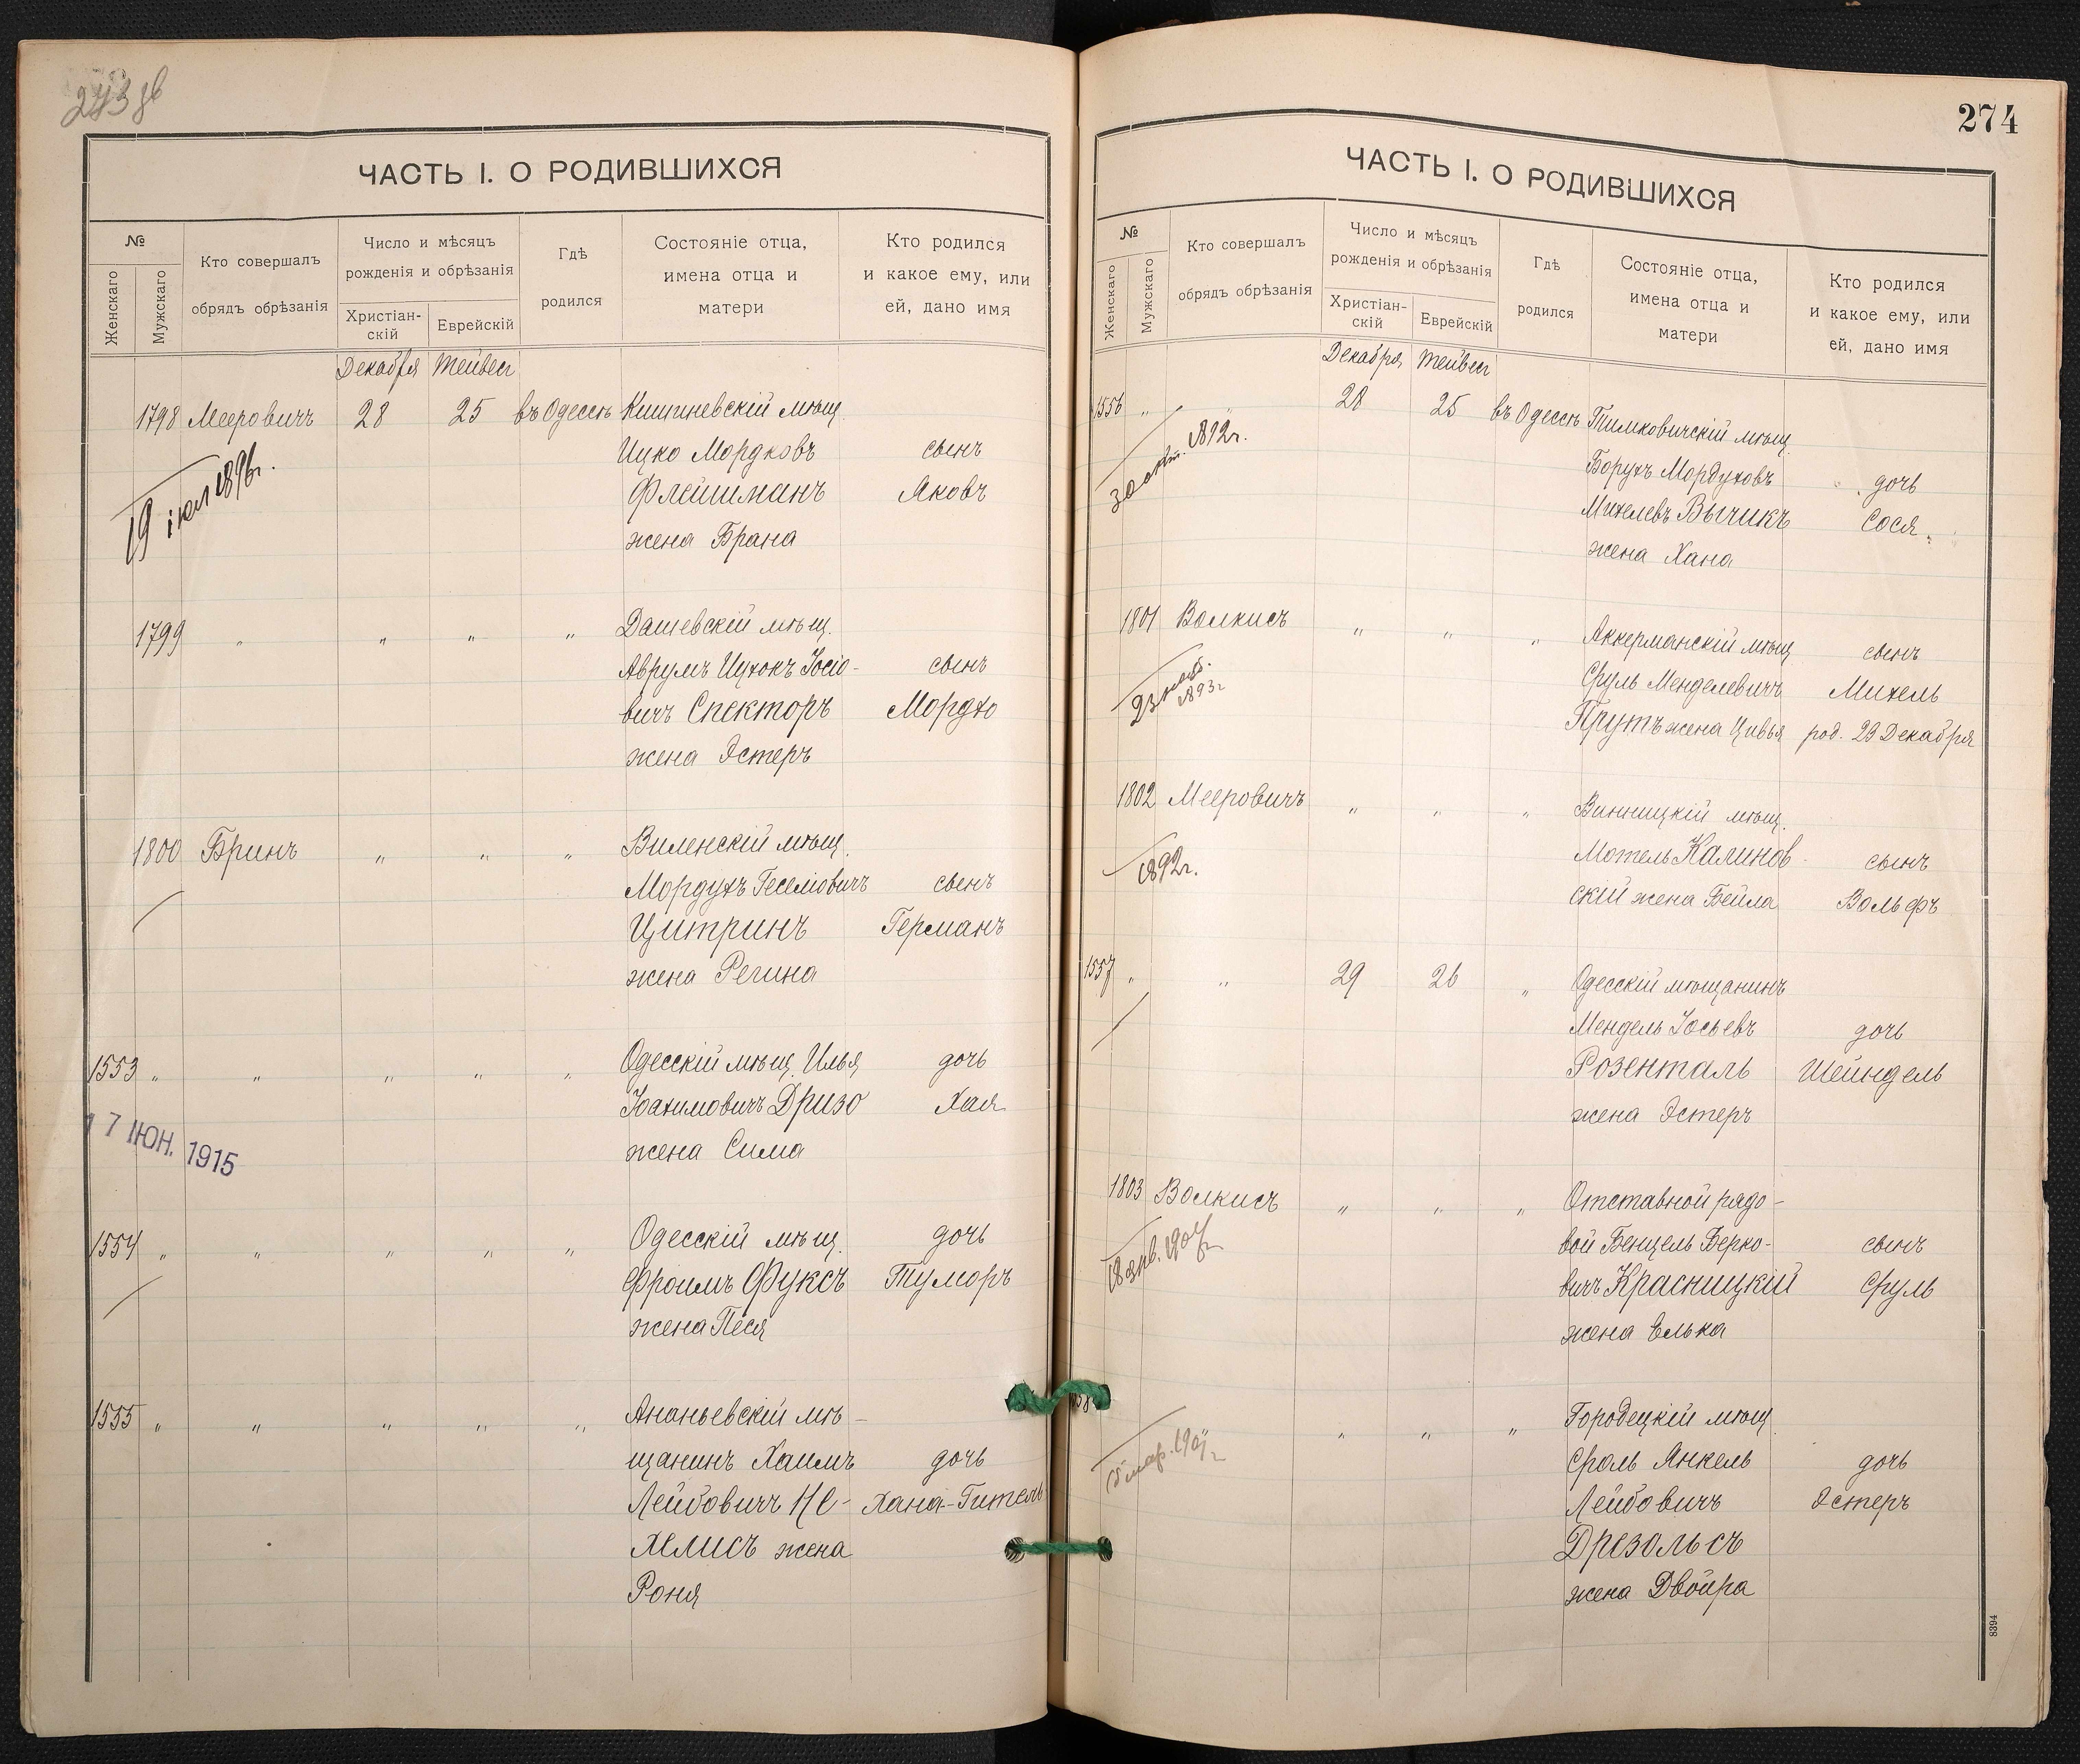 ЧАСТЬ I. О РОДИВШИХСЯ
№
Женскаго
Мужскаго
Кто совершалъ
обрядъ обрѣзанія
Число и мѣсяцъ
рожденія и обрѣзанія
Христіан-
скій
Еврейскій
Гдѣ
родился
Состояніе отца,
имена отца и
матери
Кто родился
и какое ему, или
ей, дано имя
Декабря Тейвес
1798 Мееровичъ 28 25 въ Одессѣ Кишиневскій мѣщ.
Ицко Мордковъ сынъ
Флейшманъ Яковъ
жена Брана
19 іюл 1896г.
1799 " " " " Дашевскій мѣщ.
Аврумъ Ицхокъ Іосіо- сынъ
вичъ Спекторъ Мордко
жена Эстеръ
1800 Бринъ " " " Виленскій мѣщ.
Мордухъ сынъ
Цитринъ Германъ
жена Регина
1553 " " " " " Одесскій мѣщ. Илья дочь
Іоахимовичъ Дризо Хая
жена Сима
17 ІЮН. 1915
1554 " " " " " Одесскій мѣщ. дочь
Фроимъ Фуксъ Туморъ
жена Песя
1555 " " " " " Ананьевскій мѣ-
щанинъ Хаимъ дочь
Лейбовичъ Не- Хана-Гитель
хелисъ жена
Роня
274
ЧАСТЬ I. О РОДИВШИХСЯ
№
Женскаго
Мужскаго
Кто совершалъ
обрядъ обрѣзанія
Число и мѣсяцъ
рожденія и обрѣзанія
Христіан-
скій
Еврейскій
Гдѣ
родился
Состояніе отца,
имена отца и
матери
Кто родился
и какое ему, или
ей, дано имя
Декабря Тейвес
1556 " " 28 25 въ Одессѣ Тимковичскій мѣщ.
Борухъ Мордуховъ дочь
Михелевъ Сося
жена Хана
30 окт. 1892г.
1801 Волкисъ " " " Аккерманскій мѣщ. сынъ
Сруль Менделевичъ Михель
Прутъ жена Цивья род. 23 Декабря
1893г
1802 Мееровичъ " " " Винницкій мѣщ.
Мотель Калинов- сынъ
скій жена Бейла Вольфъ
1892г.
1557 " " 29 26 " Одесскій мѣщанинъ
Мендель Іосьевъ дочь
Розенталь Шейндель
жена Эстеръ
1803 Волкисъ " " " Отставной рядо-
вой Бенцель Берко- сынъ
вичъ Красницкій Сруль
жена Елька
18 янв. 1904г
" " " " Городецкій мѣщ.
Сроль Янкель дочь
Лейбовичъ Эстеръ
Дрезольсъ
жена Двойра
8394